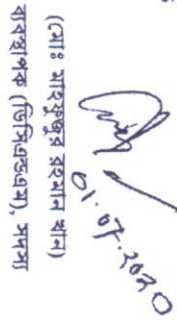 01.07.2020
(মোঃ মাহফুজুর রহমান খান)
ব্যবস্থাপক (ডিসিএন্ডএম), সদস্য